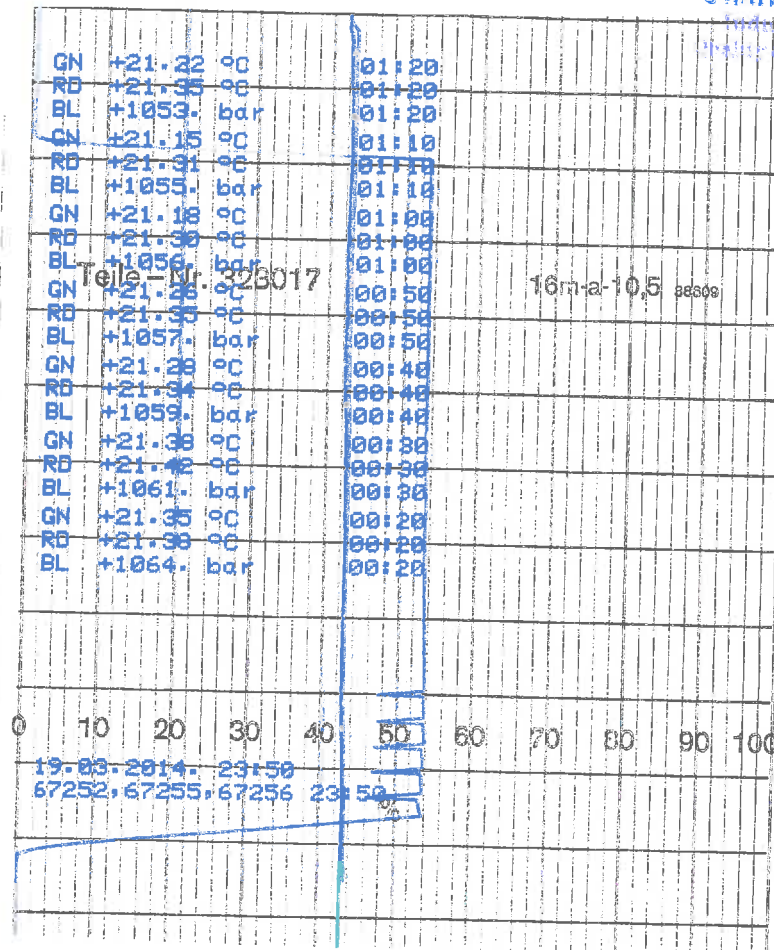 GN +21.22 °C 01:20
RD +21.35 °C 01:20
BL +1053. bar 01:20
GN +21.15 °C 01:10
RD +21.31 °C 01:10
BL +1055. bar 01:10
GN +21.18 °C 01:00
RD +21.30 °C 01:00
BL +1056. bar 01:00
Teile-Nr. 323017 16m-a-10,5
GN °C 00:50
RD +21.35 °C 00:50
BL +1057. bar 00:50
GN +21.28 °C 00:40
RD +21.34 °C 00:40
BL +1059. bar 00:40
GN +21.38 °C 00:30
RD +21.42 °C 00:30
BL +1061. bar 00:30
GN +21.35 °C 00:20
RD +21.38 °C 00:20
BL +1064. bar 00:20
0 10 20 30 40 50 60 70 80 90 100
19.03.2014. 23:50
67252,67255,67256 23:50